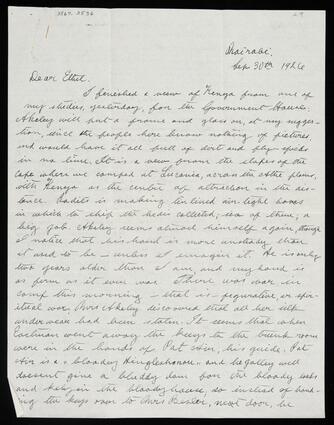 29
Nairobi
Sep 30th 1926
Dear Ethel.
I finished a view of Kenya from one of
my studies, yesterday, for the Government House.
Akeley will put a frame and glass on, at my sugges-
tion, since the people here know nothing of pictures
and would have it all full of dirt and fly-specks
in no time. It is a view from the slopes of the
where we camped at across the plains,
with Kenya as the center of attraction in the dis-
tance. is making tin lined air-tight boxes
in which to ship the hides collected; of them; a
big job. Akeley seems almost himself again, though
I notice that his hand is more unsteady than
it used to be — unless I imagin it. He is only
two years older than I am and my hand is
as firm as it ever was. There was war in
camp this morning — that is figurative, or spir-
itual war. Mrs Akeley discovered that all her silk
underwear had been stolen. It seems that when
Eastman went away the keys to the trunk room
were in the hands of Pat his guide. Pat
is a bloody and he jolley well
doesent give a bluddy dam for the bloody
and in the bloody house, so instead of hand-
ing the keys over to Mrs next door, he